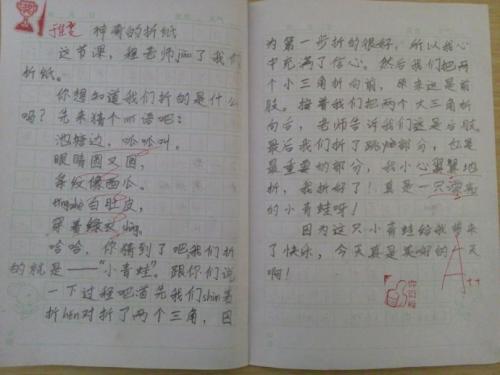 神奇的折纸
这节课,程老师画了我们
折纸。
你想知道我们折的是什么
吗?先来猜个谜语吧:
池塘边,呱呱叫,
眼睛圆又圆,
条纹像西瓜。
白肚皮,
穿着绿衣
哈哈,你猜到了吧我们折
的就是——“小青蛙”。跟你们说
一下过程吧首先我们shin着
折hén对折了两个三角,因
为第一步折的很好,所以我心
中充满了信心。然后我们把两
个小三角折向前,原来这是前
肢。接着我们把两个大三角折
向后,老师告诉我们这是后肢
最后我们折了跳动部分,也是
最重要的部分,我小心翼翼地
折,我折好了!真是一只漂亮
的小青蛙呀!
因为这只小青蛙给我带来
了快乐,今天真是美好的一天
啊!
A++